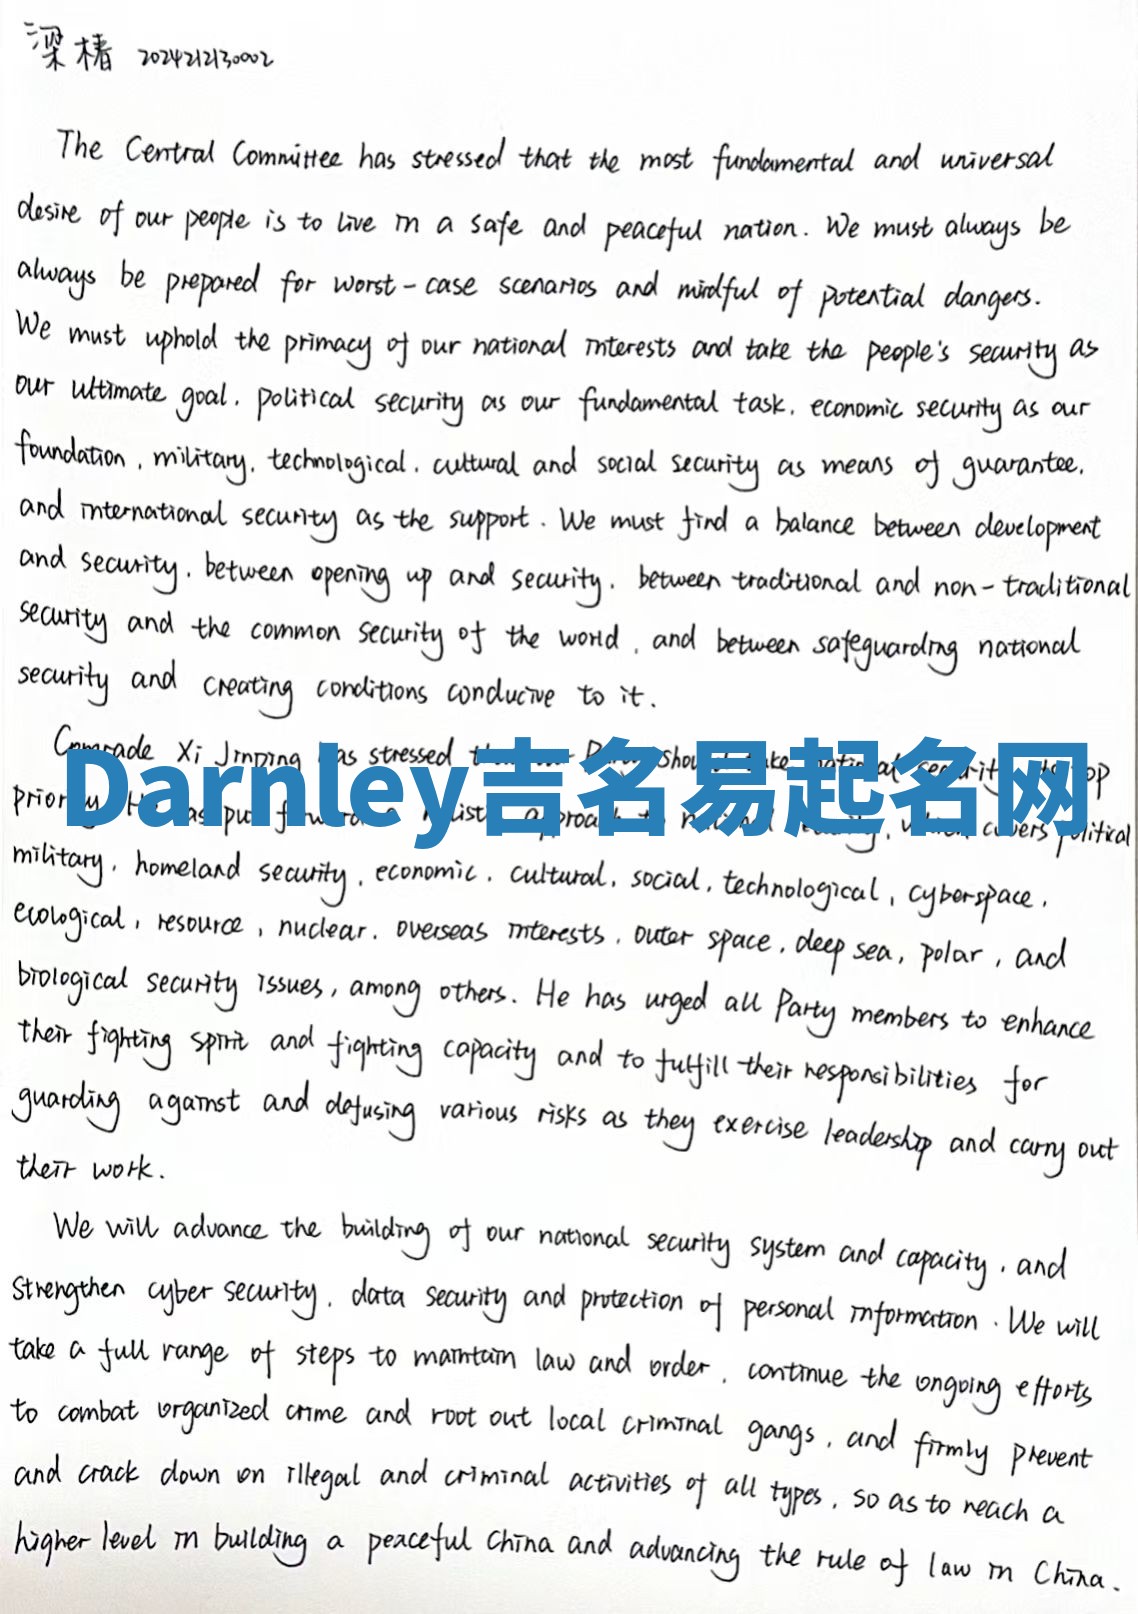 梁椿 2024212130002
The Central Committee has stressed that the most fundamental and universal
desire of our people is to live in a safe and peaceful nation. We must always be
always be prepared for worst-case scenarios and mindful of potential dangers.
We must uphold the primacy of our national interests and take the people's security as
our ultimate goal, political security as our fundamental task, economic security as our
foundation, military, technological, cultural and social security as means of guarantee,
and international security as the support. We must find a balance between development
and security, between opening up and security, between traditional and non-traditional
security and the common security of the world, and between safeguarding national
security and creating conditions conducive to it.
Comrade Xi Jinping has stressed should national security top
Darnley吉名易起名网
priority put approach national covers political
military, homeland security, economic, cultural, social, technological, cyberspace,
ecological, resource, nuclear, overseas interests, outer space, deep sea, polar, and
biological security issues, among others. He has urged all Party members to enhance
their fighting spirit and fighting capacity and to fulfill their responsibilities for
guarding against and defusing various risks as they exercise leadership and carry out
their work.
We will advance the building of our national security system and capacity, and
strengthen cyber security, data security and protection of personal information. We will
take a full range of steps to maintain law and order, continue the ongoing efforts
to combat organized crime and root out local criminal gangs, and firmly prevent
and crack down on illegal and criminal activities of all types, so as to reach a
higher level in building a peaceful China and advancing the rule of law in China.